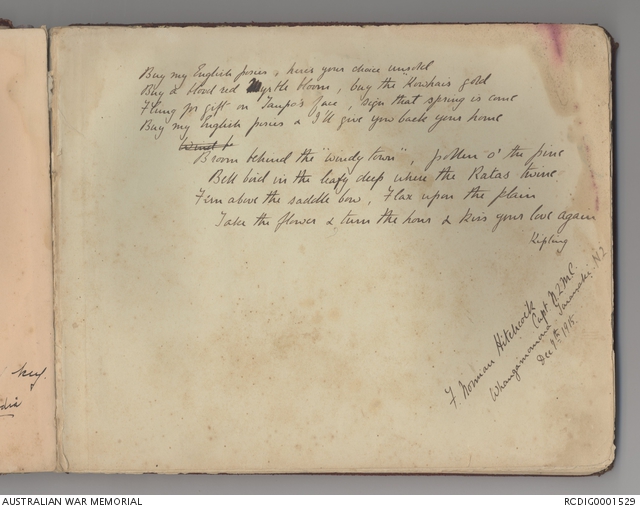 Buy my English posies, here's your choice unsold
Buy a blood red Myrtle bloom, buy the Kowhai's gold
Flung for gift on Taupo's face, sign that spring is come
Buy my English posies & I'll give you back your home
Broom behind the "windy town", pollen o' the pine
Bell bird in the leafy deep where the Ratas twine
Fern above the saddle bow, Flax upon the plain
Take the flower & turn the hour & kiss your love again
Kipling
F. Norman Hitchcock
Capt. N.Z.M.C.
Whangamomona Taranaki N.Z
Dec 9th 1915.
AUSTRALIAN WAR MEMORIAL
RCDIG0001529